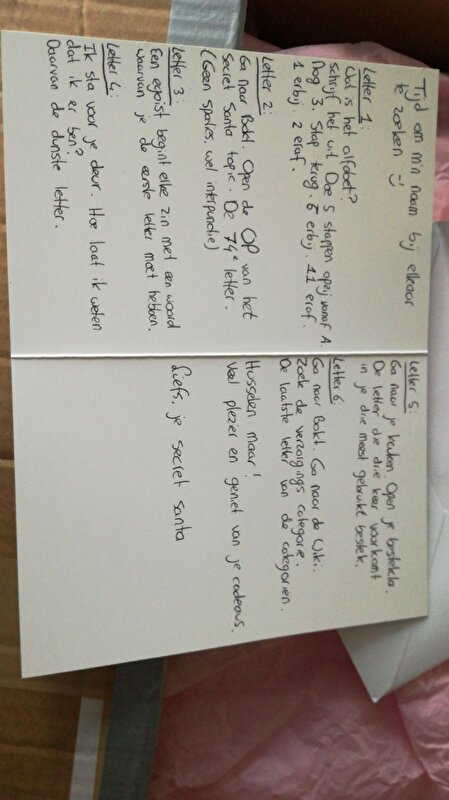 Tijd om m'n naam bij elkaar
te zoeken :-)
Letter 1:
Wat is het alfabet?
Schrijf het uit. Doe 5 stappen opzij vanaf A
Nog 3. Stap terug. 6 erbij. 11 eraf.
1 erbij 2 eraf.
Letter 2:
Ga naar Bokt. Open de OP van het
Secret Santa topic. De 74e letter.
(Geen spaties, wel interpunctie)
Letter 3:
Een egoist begint elke zin met een woord
waarvan je de eerste letter moet hebben.
Letter 4:
Ik sta voor je deur. Hoe laat ik weten
dat ik er ben?
Daarvan de dunste letter.
Letter 5:
Ga naar je keuken. Open je bestekla.
De letter die drie keer voorkomt
in je drie meest gebruikt bestek.
Letter 6:
Ga naar Bokt. Ga naar de Wiki.
Zoek de verzorgings categorie.
De laatste letter van de categorien.
Husselen maar!
Veel plezier en geniet van je cadeaus.
Liefs, je secret santa